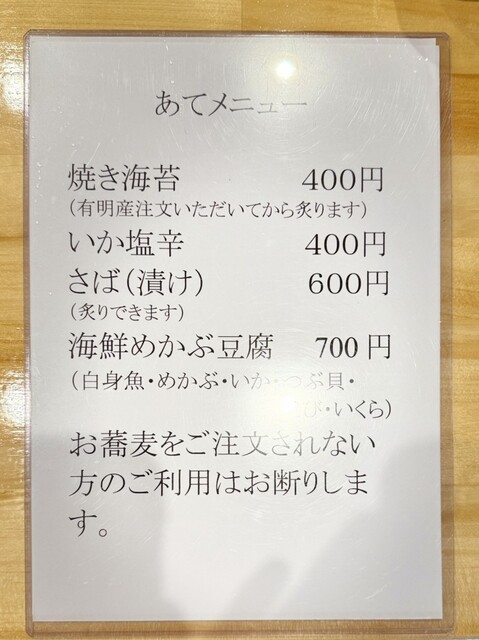 あてメニュー
焼き海苔 400円
(有明産注文いただいてから炙ります)
いか塩辛 400円
さば(漬け) 600円
(炙りできます)
海鮮めかぶ豆腐 700円
(白身魚・めかぶ・いか・つぶ貝・
び・いくら)
お蕎麦をご注文されない
方のご利用はお断りしま
す。